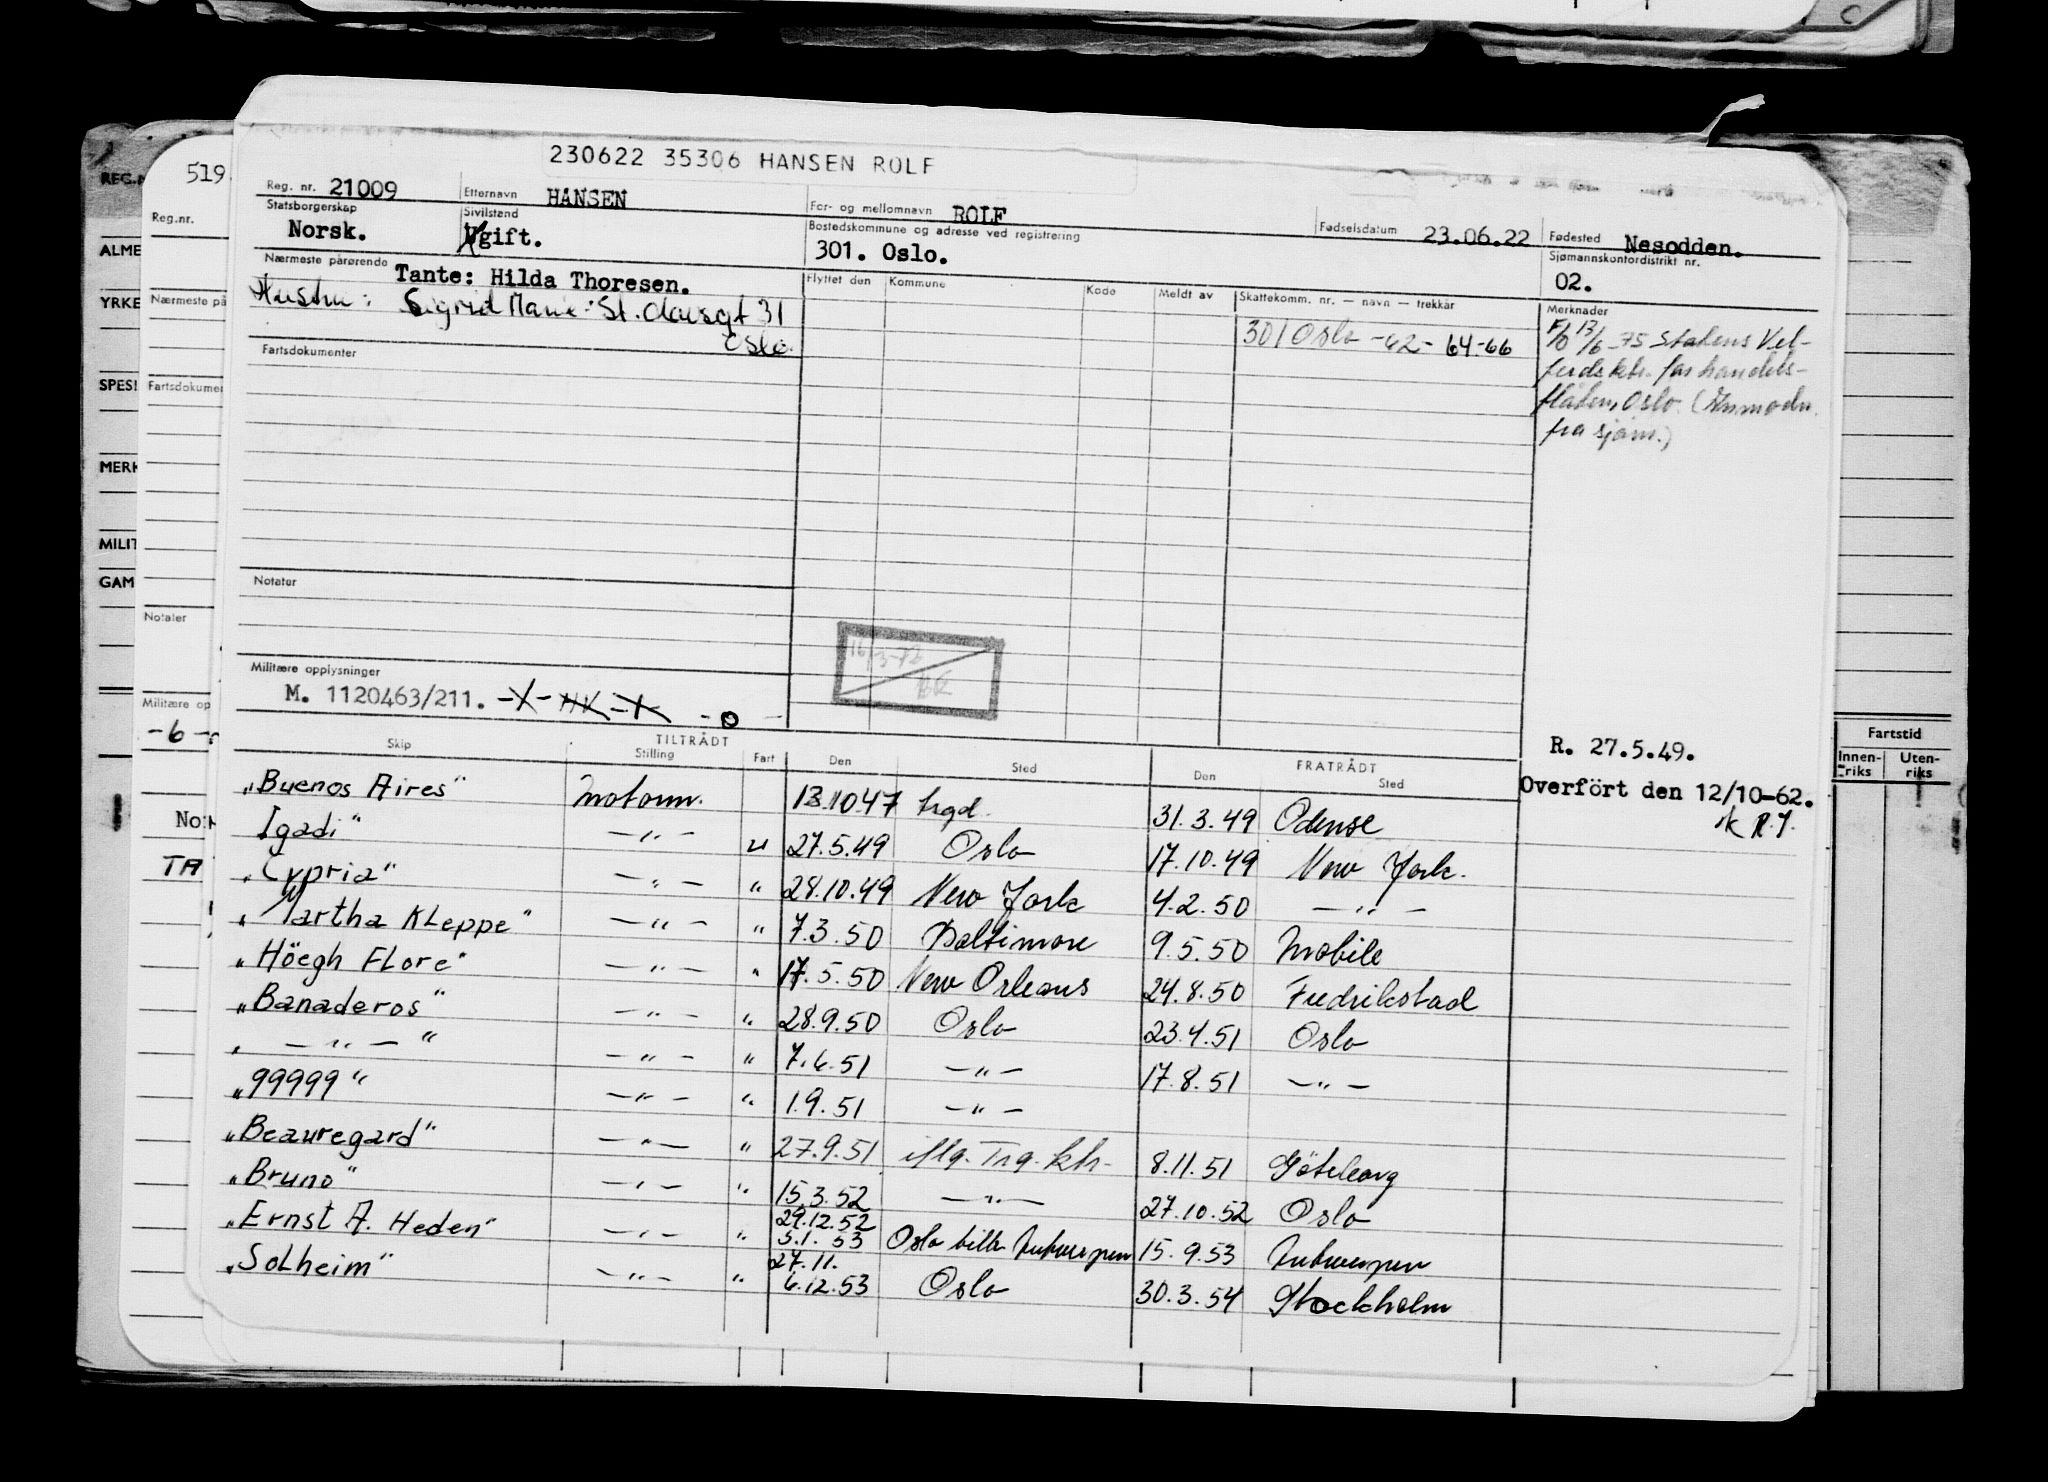 230622 35306 HANSEN ROLF
519
REG.N
Reg.nr.
ALME
YRKE
Nærmeste på
SPESI
Fartsdokumen
MERK
MILIT
GAM
Notater
Militære op
-6-
No:
TA
Reg. nr. 21009 Etternavn HANSEN For- og mellomnavn ROLF Fødselsdatum 23.06.22 Fødested Nesodden.
Statsborgerskap Norsk. Sivilstand Ugift. Bostedskommune og adresse ved registrering 301. Oslo. Sjømannskontordistrikt nr. 02.
Nærmeste pårørende Tante: Hilda Thoresen. Flyttet den Kommune Kode Meldt av Skattekomm. nr. — navn — trekkår Merknader
Hustru: Sigrid Marie: St. Olavsgt 31
Oslo.
301 Oslo -62- 64-66
F/o 13/6-75 Statens Vel-
ferdsktr. for handels-
flåten, Oslo. (Anmodn.
fra sjøm.)
Fartsdokumenter
Notater
16/3-72
Militære opplysninger
M. 1120463/211. -X- -X- -O-
R. 27.5.49.
Overfört den 12/10-62.
Fartstid
Innen-riks Uten-riks
TILTRÅDT FRATRÅDT
Skip Stilling Fart Den Sted Den Sted
"Buenos Aires" Motorm. 13.10.47 trgd. 31.3.49 Odense
Igadi" —"— u 27.5.49 Oslo 17.10.49 New York.
"Cypria" —"— " 28.10.49 New York 4.2.50 —"—
"Martha Kleppe" —"— " 7.3.50 Baltimore 9.5.50 Mobile
"Höegh Flore" —"— " 17.5.50 New Orleans 24.8.50 Fredrikstad
"Banaderos" —"— " 28.9.50 Oslo 23.4.51 Oslo
" —"— " —"— " 7.6.51 —"— 17.8.51 —"—
"99999" —"— " 1.9.51 —"—
"Beauregard" —"— " 27.9.51 iflg. Trg. ktr. 8.11.51 Göteborg
"Bruno" —"— " 15.3.52 —"— 27.10.52 Oslo
"Ernst A. Heden" —"— " 29.12.52 5.1.53 Oslo Antwerpen 15.9.53 Antwerpen
"Solheim" —"— " 27.11. 6.12.53 Oslo 30.3.54 Stockholm